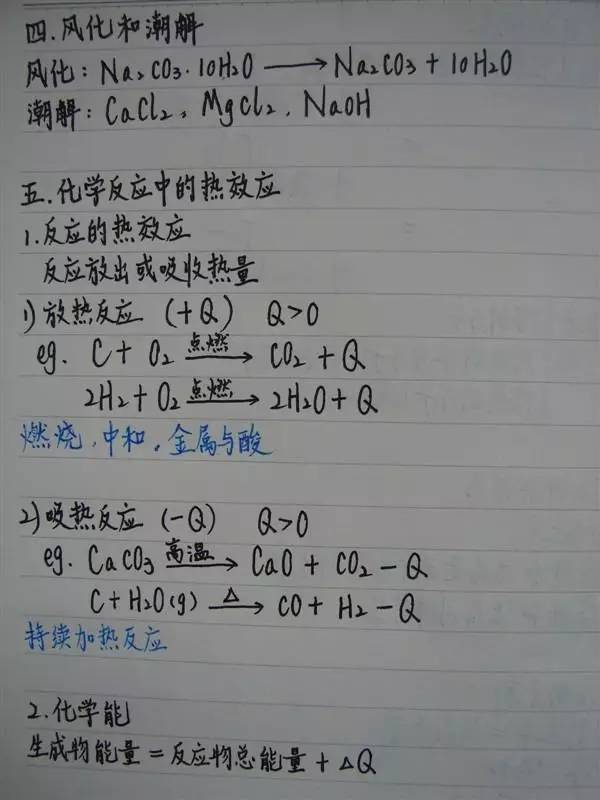 四.风化和潮解
风化：Na₂CO₃·10H₂O ⟶ Na₂CO₃+10H₂O
潮解：CaCl₂、MgCl₂、NaOH
五.化学反应中的热效应
1.反应的热效应
反应放出或吸收热量
1)放热反应 (+Q) Q>0
eg. C+O₂ 点燃⟶ CO₂+Q
2H₂+O₂ 点燃⟶ 2H₂O+Q
燃烧、中和、金属与酸
2)吸热反应 (-Q) Q>0
eg. CaCO₃ 高温⟶ CaO+CO₂-Q
C+H₂O(g) △⟶ CO+H₂-Q
持续加热反应
2.化学能
生成物能量=反应物总能量+△Q